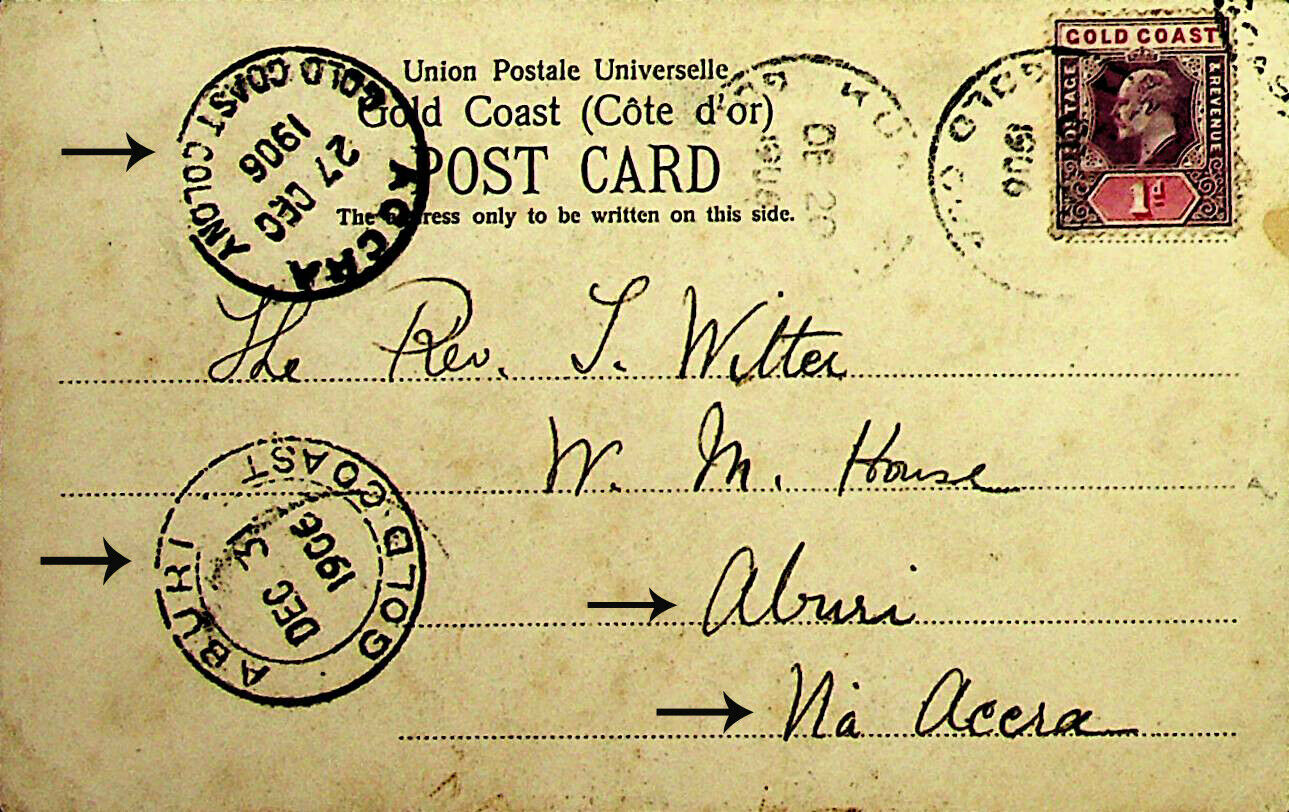 GOLD COAST
POSTAGE & REVENUE
1d
Union Postale Universelle
Gold Coast (Côte d'or)
POST CARD
The address only to be written on this side.
ACCRA
GOLD COAST COLONY
27 DEC
1906
DE 20
1906
GOLD COA
1906
The Rev. T. Witter
W. M. House
Aburi
Via Accra
ABURI
GOLD COAST
DEC 31
1906